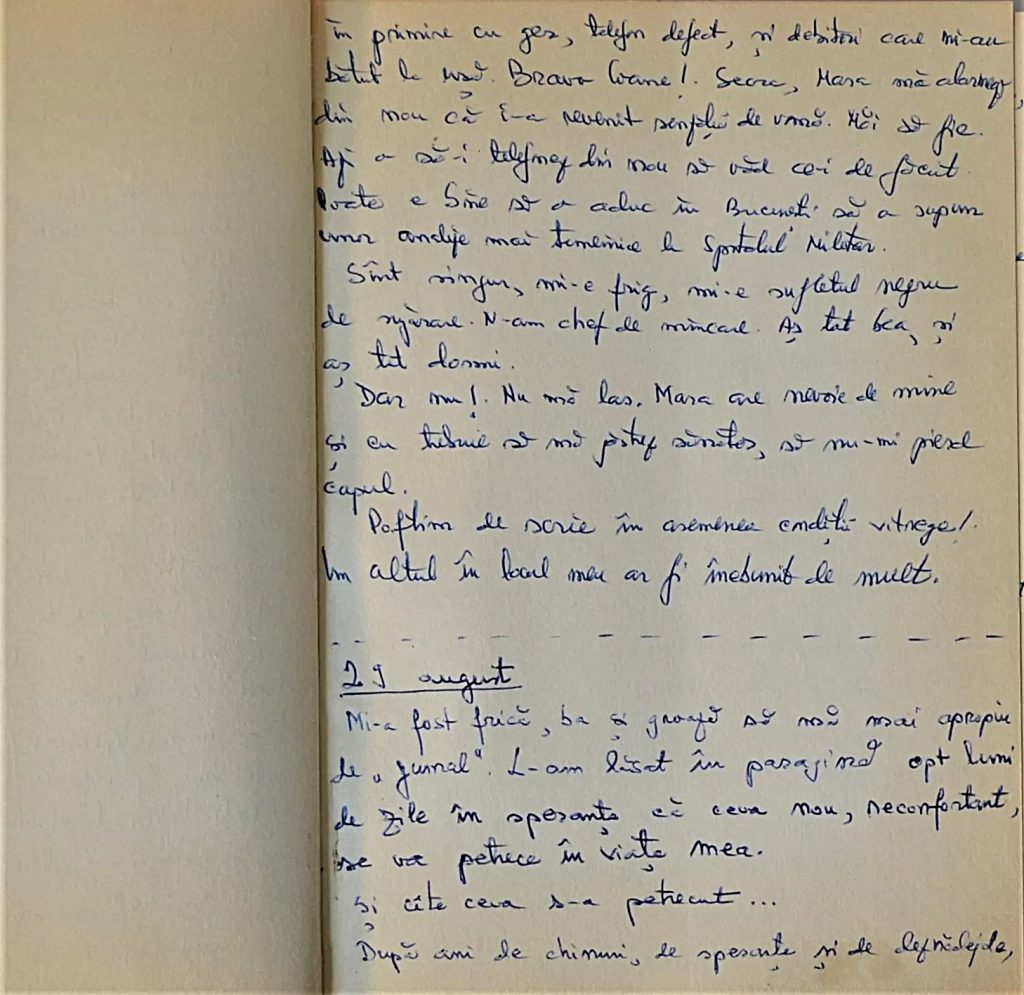 în primire cu gaz, telefon defect, și debitori care mi-au
bătut la ușă. Bravo Ivane! Seara, Mara mă alarmează
din nou că i-a revenit senzația de vomă. Hai să fie.
Aș o să-i telefonez din nou să văd ce-i de făcut.
Poate e bine să o aduc în București să o supun
unor analize mai temeinice la Spitalul Militar.
Sînt singur, mi-e frig, mi-e sufletul negru
de supărare. N-am chef de mîncare. Aș tot bea, și
aș tot dormi.
Dar nu! Nu mă las. Mara are nevoie de mine
și eu trebuie să mă păstrez sănătos, să nu-mi pierd
capul.
Poftim de scrie în asemenea condiții vitrege!
Un altul în locul meu ar fi înebunit de mult.
29 august
Mi-a fost frică, ba și groază să mă mai apropiu
de „jurnal". L-am lăsat în paragină opt luni
de zile în speranța că ceva nou, reconfortant,
se va petrece în viața mea.
Și cîte ceva s-a petrecut...
După ani de chinuri, de speranțe și de deznădejde,